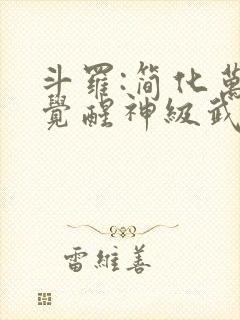 斗羅:簡化萬
覺醒神級武
雷維善